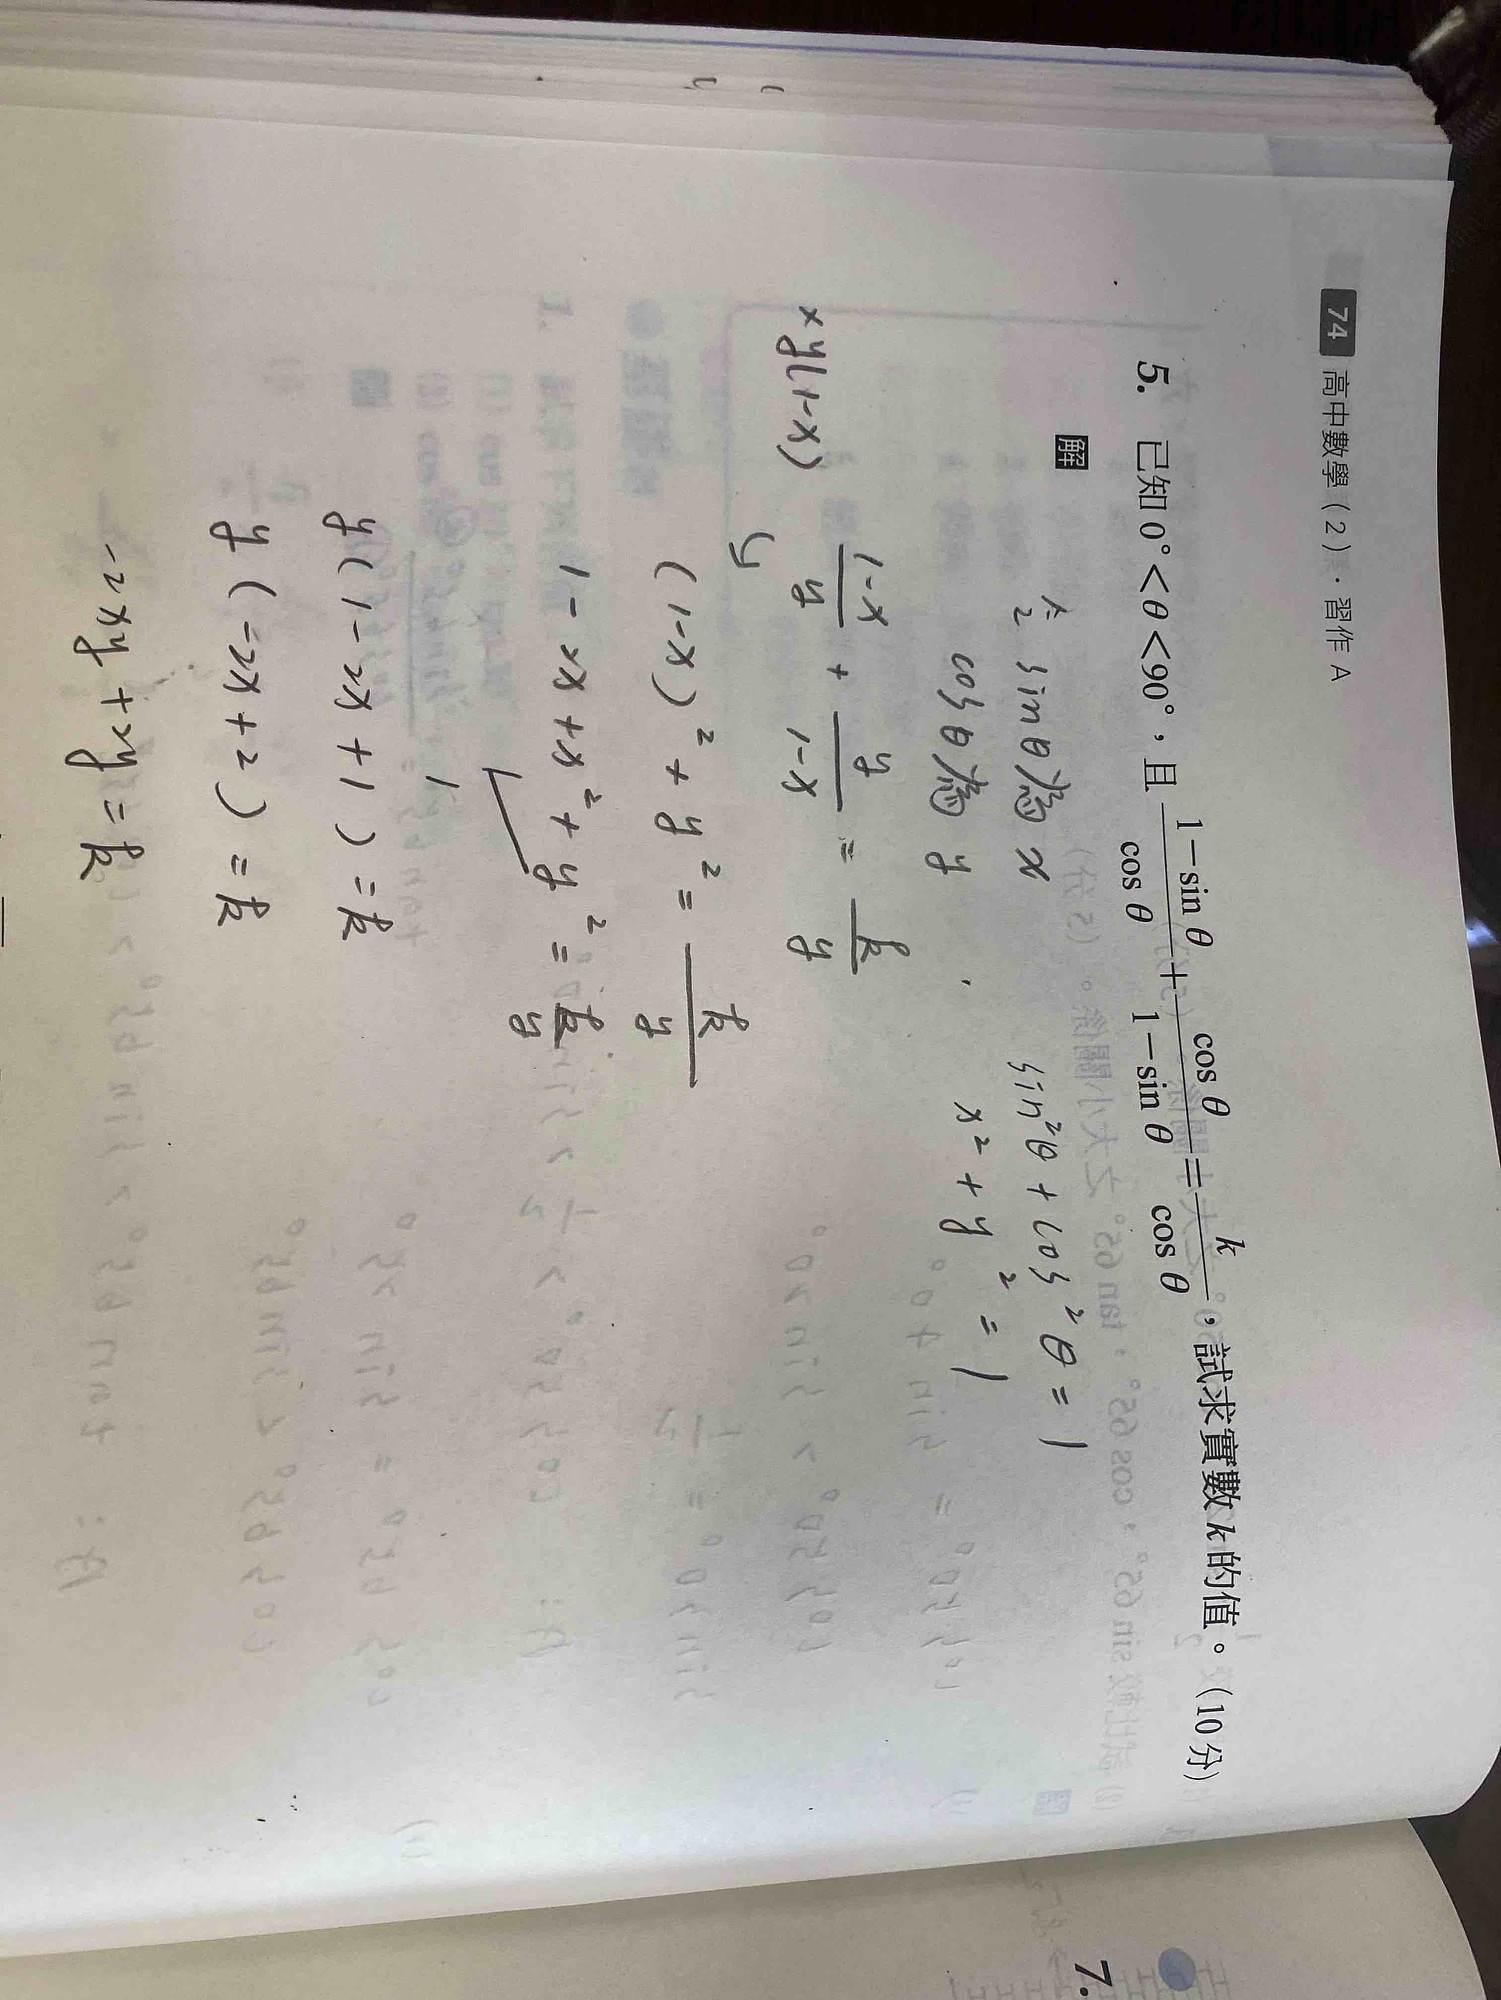 74 高中數學(2)·習作 A
5. 已知 0°<θ<90°,且 (1-sin θ)/(cos θ) + (cos θ)/(1-sin θ) = k/(cos θ),試求實數 k 的值。(10分)
解
令 sinθ 為 x
sin²θ + cos²θ = 1
cosθ 為 y
x² + y² = 1
(1-x)/y + y/(1-x) = k/y
xy(1-x)
y
(1-x)² + y² = k/y
1-2x+x²+y² = k/y
1
y(1-2x+1) = k
y(-2x+2) = k
-2xy+2y = k
7.